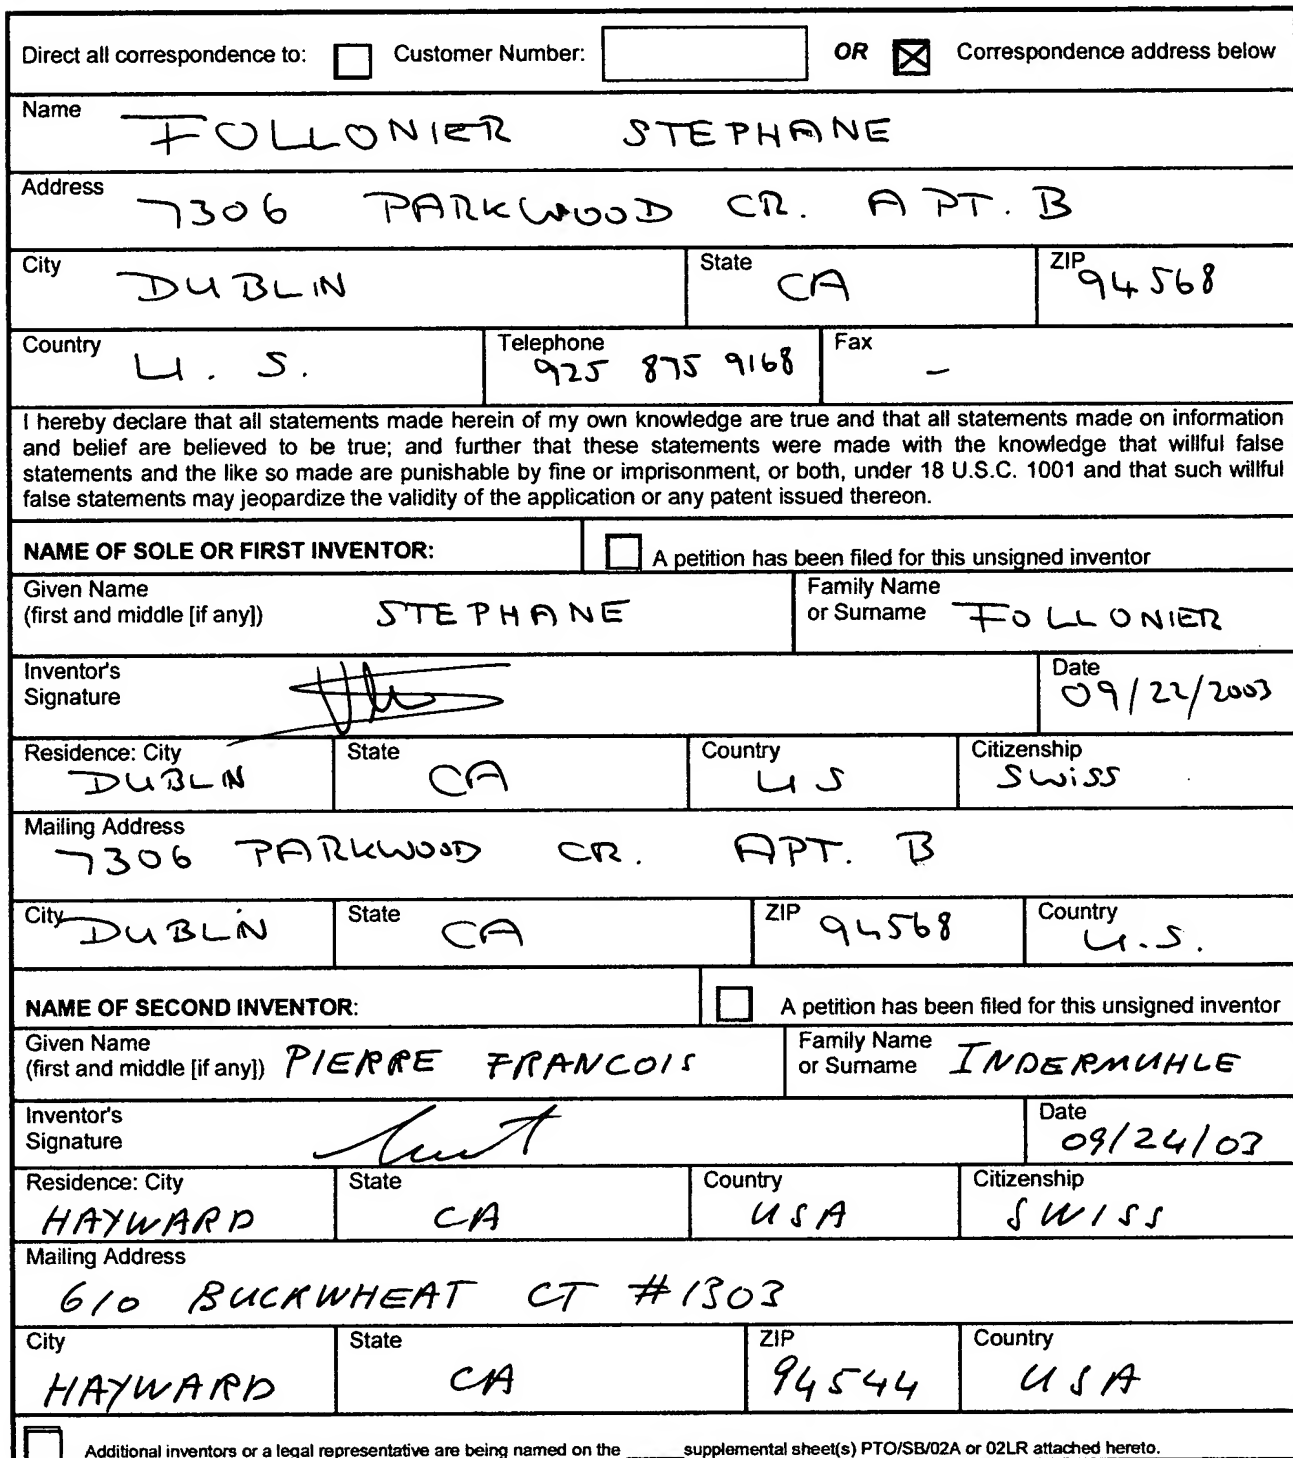 Direct all correspondence to: Customer Number: OR Correspondence address below
Name FOLLONIER STEPHANE
Address 7306 PARKWOOD CR. APT. B
City DUBLIN State CA ZIP 94568
Country U.S. Telephone 925 875 9168 Fax –
I hereby declare that all statements made herein of my own knowledge are true and that all statements made on information
and belief are believed to be true; and further that these statements were made with the knowledge that willful false
statements and the like so made are punishable by fine or imprisonment, or both, under 18 U.S.C. 1001 and that such willful
false statements may jeopardize the validity of the application or any patent issued thereon.
NAME OF SOLE OR FIRST INVENTOR: A petition has been filed for this unsigned inventor
Given Name Family Name
(first and middle [if any]) STEPHANE or Surname FOLLONIER
Inventor's Date
Signature 09/22/2003
Residence: City State Country Citizenship
DUBLIN CA US Swiss
Mailing Address
7306 PARKWOOD CR. APT. B
City DUBLIN State CA ZIP 94568 Country U.S.
NAME OF SECOND INVENTOR: A petition has been filed for this unsigned inventor
Given Name Family Name
(first and middle [if any]) PIERRE FRANCOIS or Surname INDERMUHLE
Inventor's Date
Signature 09/24/03
Residence: City State Country Citizenship
HAYWARD CA USA SWISS
Mailing Address
610 BUCKWHEAT CT #1303
City State ZIP Country
HAYWARD CA 94544 USA
Additional inventors or a legal representative are being named on the ______supplemental sheet(s) PTO/SB/02A or 02LR attached hereto.